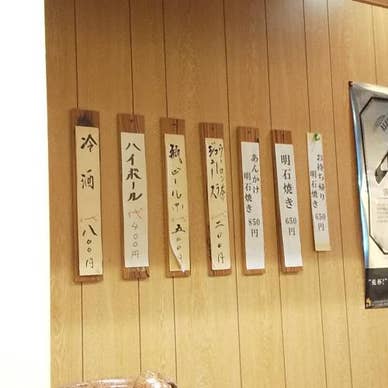 お持ち帰り
明石焼き 650円
明石焼き 650円
あんかけ
明石焼き 850円
ウーロン茶
ジュース 二〇〇円
瓶ビール 中 五〇〇円
ハイボール 400円
冷酒 八〇〇円